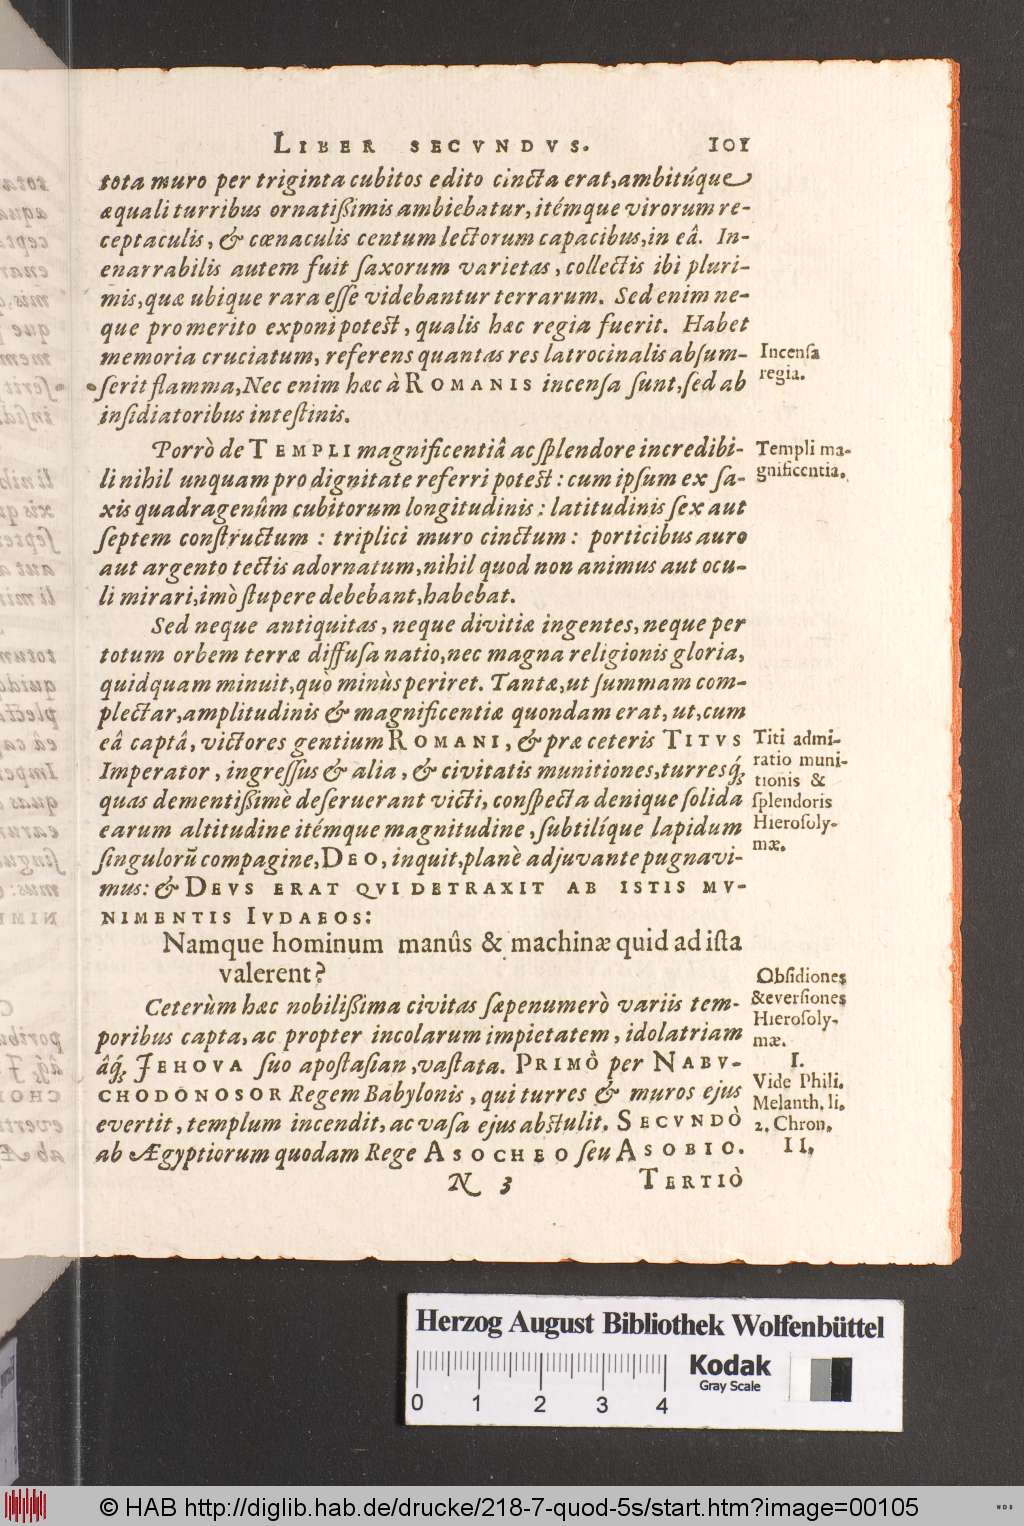 LIBER SECVNDVS. 101
tota muro per triginta cubitos edito cincta erat, ambitúque
æquali turribus ornatißimis ambiebatur, itémque virorum re-
ceptaculis, & cœnaculis centum lectorum capacibus, in eâ. In-
enarrabilis autem fuit saxorum varietas, collectis ibi pluri-
mis, quæ ubique rara esse videbantur terrarum. Sed enim ne-
que pro merito exponi potest, qualis hæc regia fuerit. Habet
memoria cruciatum, referens quantas res latrocinalis absum-
serit flamma, Nec enim hæc à ROMANIS incensa sunt, sed ab
insidiatoribus intestinis.
Incensa
regia.
Porrò de TEMPLI magnificentiâ ac splendore incredibi-
li nihil unquam pro dignitate referri potest: cum ipsum ex sa-
xis quadragenûm cubitorum longitudinis: latitudinis sex aut
septem constructum: triplici muro cinctum: porticibus auro
aut argento tectis adornatum, nihil quod non animus aut ocu-
li mirari, imò stupere debebant, habebat.
Templi ma-
gnificentia.
Sed neque antiquitas, neque divitiæ ingentes, neque per
totum orbem terræ diffusa natio, nec magna religionis gloria,
quidquam minuit, quò minùs periret. Tantæ, ut summam com-
plectar, amplitudinis & magnificentiæ quondam erat, ut, cum
eâ captâ, victores gentium ROMANI, & præ ceteris TITVS
Imperator, ingressus & alia, & civitatis munitiones, turresq́;
quas dementißimè deseruerant victi, conspecta denique solida
earum altitudine itémque magnitudine, subtilíque lapidum
singulorũ compagine, DEO, inquit, planè adjuvante pugnavi-
mus: & DEVS ERAT QVI DETRAXIT AB ISTIS MV-
NIMENTIS IVDAEOS:
Titi admi-
ratio muni-
tionis &
splendoris
Hierosoly-
mæ.
Namque hominum manûs & machinæ quid ad ista
valerent?
Ceterùm hæc nobilißima civitas sæpenumerò variis tem-
poribus capta, ac propter incolarum impietatem, idolatriam
âq́; JEHOVA suo apostasian, vastata. PRIMÒ per NABV-
CHODONOSOR Regem Babylonis, qui turres & muros ejus
evertit, templum incendit, ac vasa ejus abstulit. SECVNDÒ
ab Ægyptiorum quodam Rege ASOCHEO seu ASOBIO.
Obsidiones
& eversiones
Hierosoly-
mæ.
I.
Vide Phili.
Melanth. li.
2. Chron.
II.
N 3 TERTIÒ
Herzog August Bibliothek Wolfenbüttel
0 1 2 3 4
Kodak
Gray Scale
© HAB http://diglib.hab.de/drucke/218-7-quod-5s/start.htm?image=00105